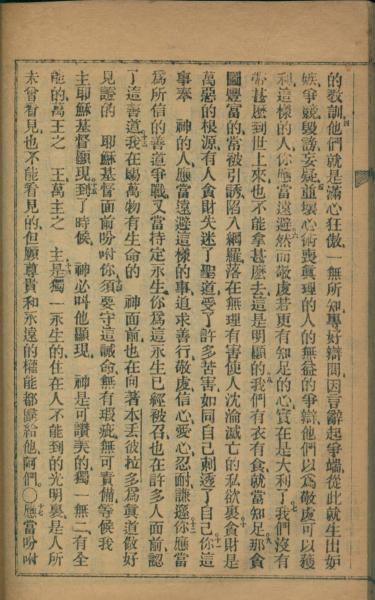 的教訓、他們就是滿心狂傲、一無所知、專好辯問、因言辭起爭端、從此就生出妒
嫉、爭競、毀謗、妄疑、並壞心術喪眞理的人的無益的爭辯、他們以爲敬虔可以獲
利、這樣的人、你應當遠避、然而敬虔若更有知足的心、實在是大利了、我們沒有
帶甚麽到世上來、也不能拿甚麽去、這是明顯的、我們有衣有食就當知足、那貪
圖豐富的、常被引誘、陷入網羅、落在無理有害使人沈淪滅亡的私慾裏、貪財是
萬惡的根源、有人貪財失迷了聖道、受了許多苦害、如同自己刺透了自己、你這
事奉　神的人、應當遠避這樣的事、追求善行、敬虔、信心、愛心、忍耐、謙遜、你應當
爲所信的善道爭戰、又當持定永生、你爲這永生已經被召、也在許多人面前、認
了這善道、我在賜萬物有生命的　神面前、也在向著本丟彼拉多爲眞道做好
見證的　耶穌基督面前吩咐你、須要守這誡命、無有瑕疵、無可責備、等候我
主耶穌基督顯現、到了時候、　神必叫他顯現、　神是可讚美的、獨一無二、有全
能的、萬王之　王、萬主之　主、是獨一永生的、住在人不能到的光明裏、是人所
未曾看見、也不能看見的、但願尊貴和永遠的權能、都歸給他、阿們。○應當吩咐